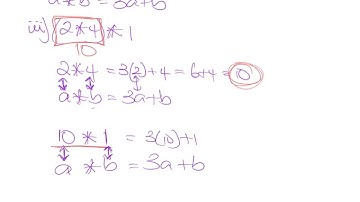 a*b = 3a+b
iii) (2*4)*1
10
2*4 = 3(2)+4 = 6+4 = 10
a*b = 3a+b
10 * 1 = 3(10)+1
a * b = 3a+b